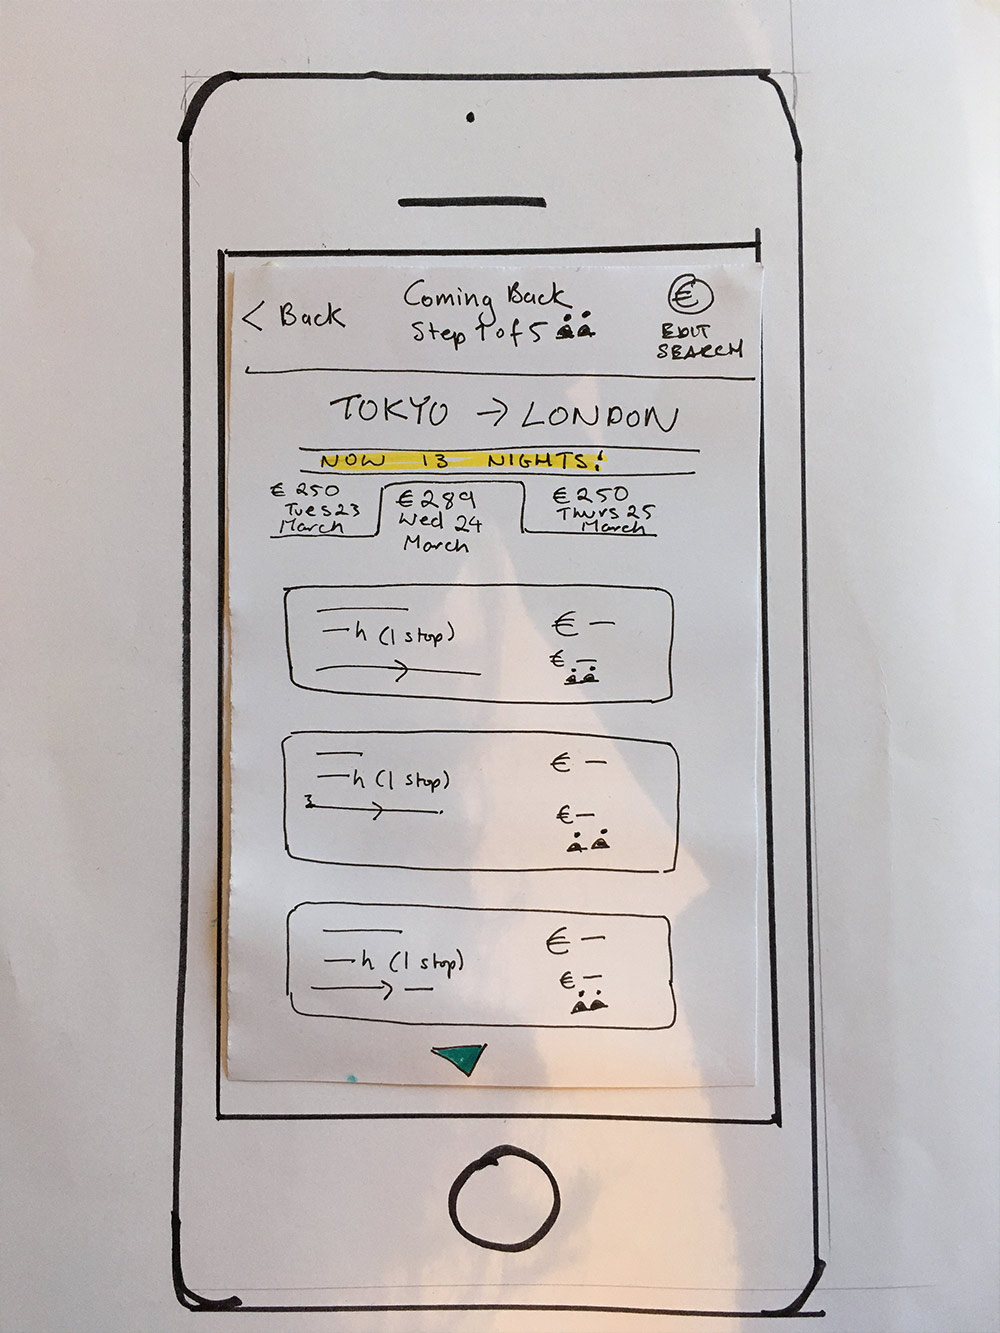 < Back
Coming Back
Step 1 of 5
€
EDIT
SEARCH
TOKYO → LONDON
NOW 13 NIGHTS!
€250
Tues 23
March
€289
Wed 24
March
€250
Thurs 25
March
—h (1 stop)
€ —
€ —
—h (1 stop)
€ —
€ —
—h (1 stop)
€ —
€ —